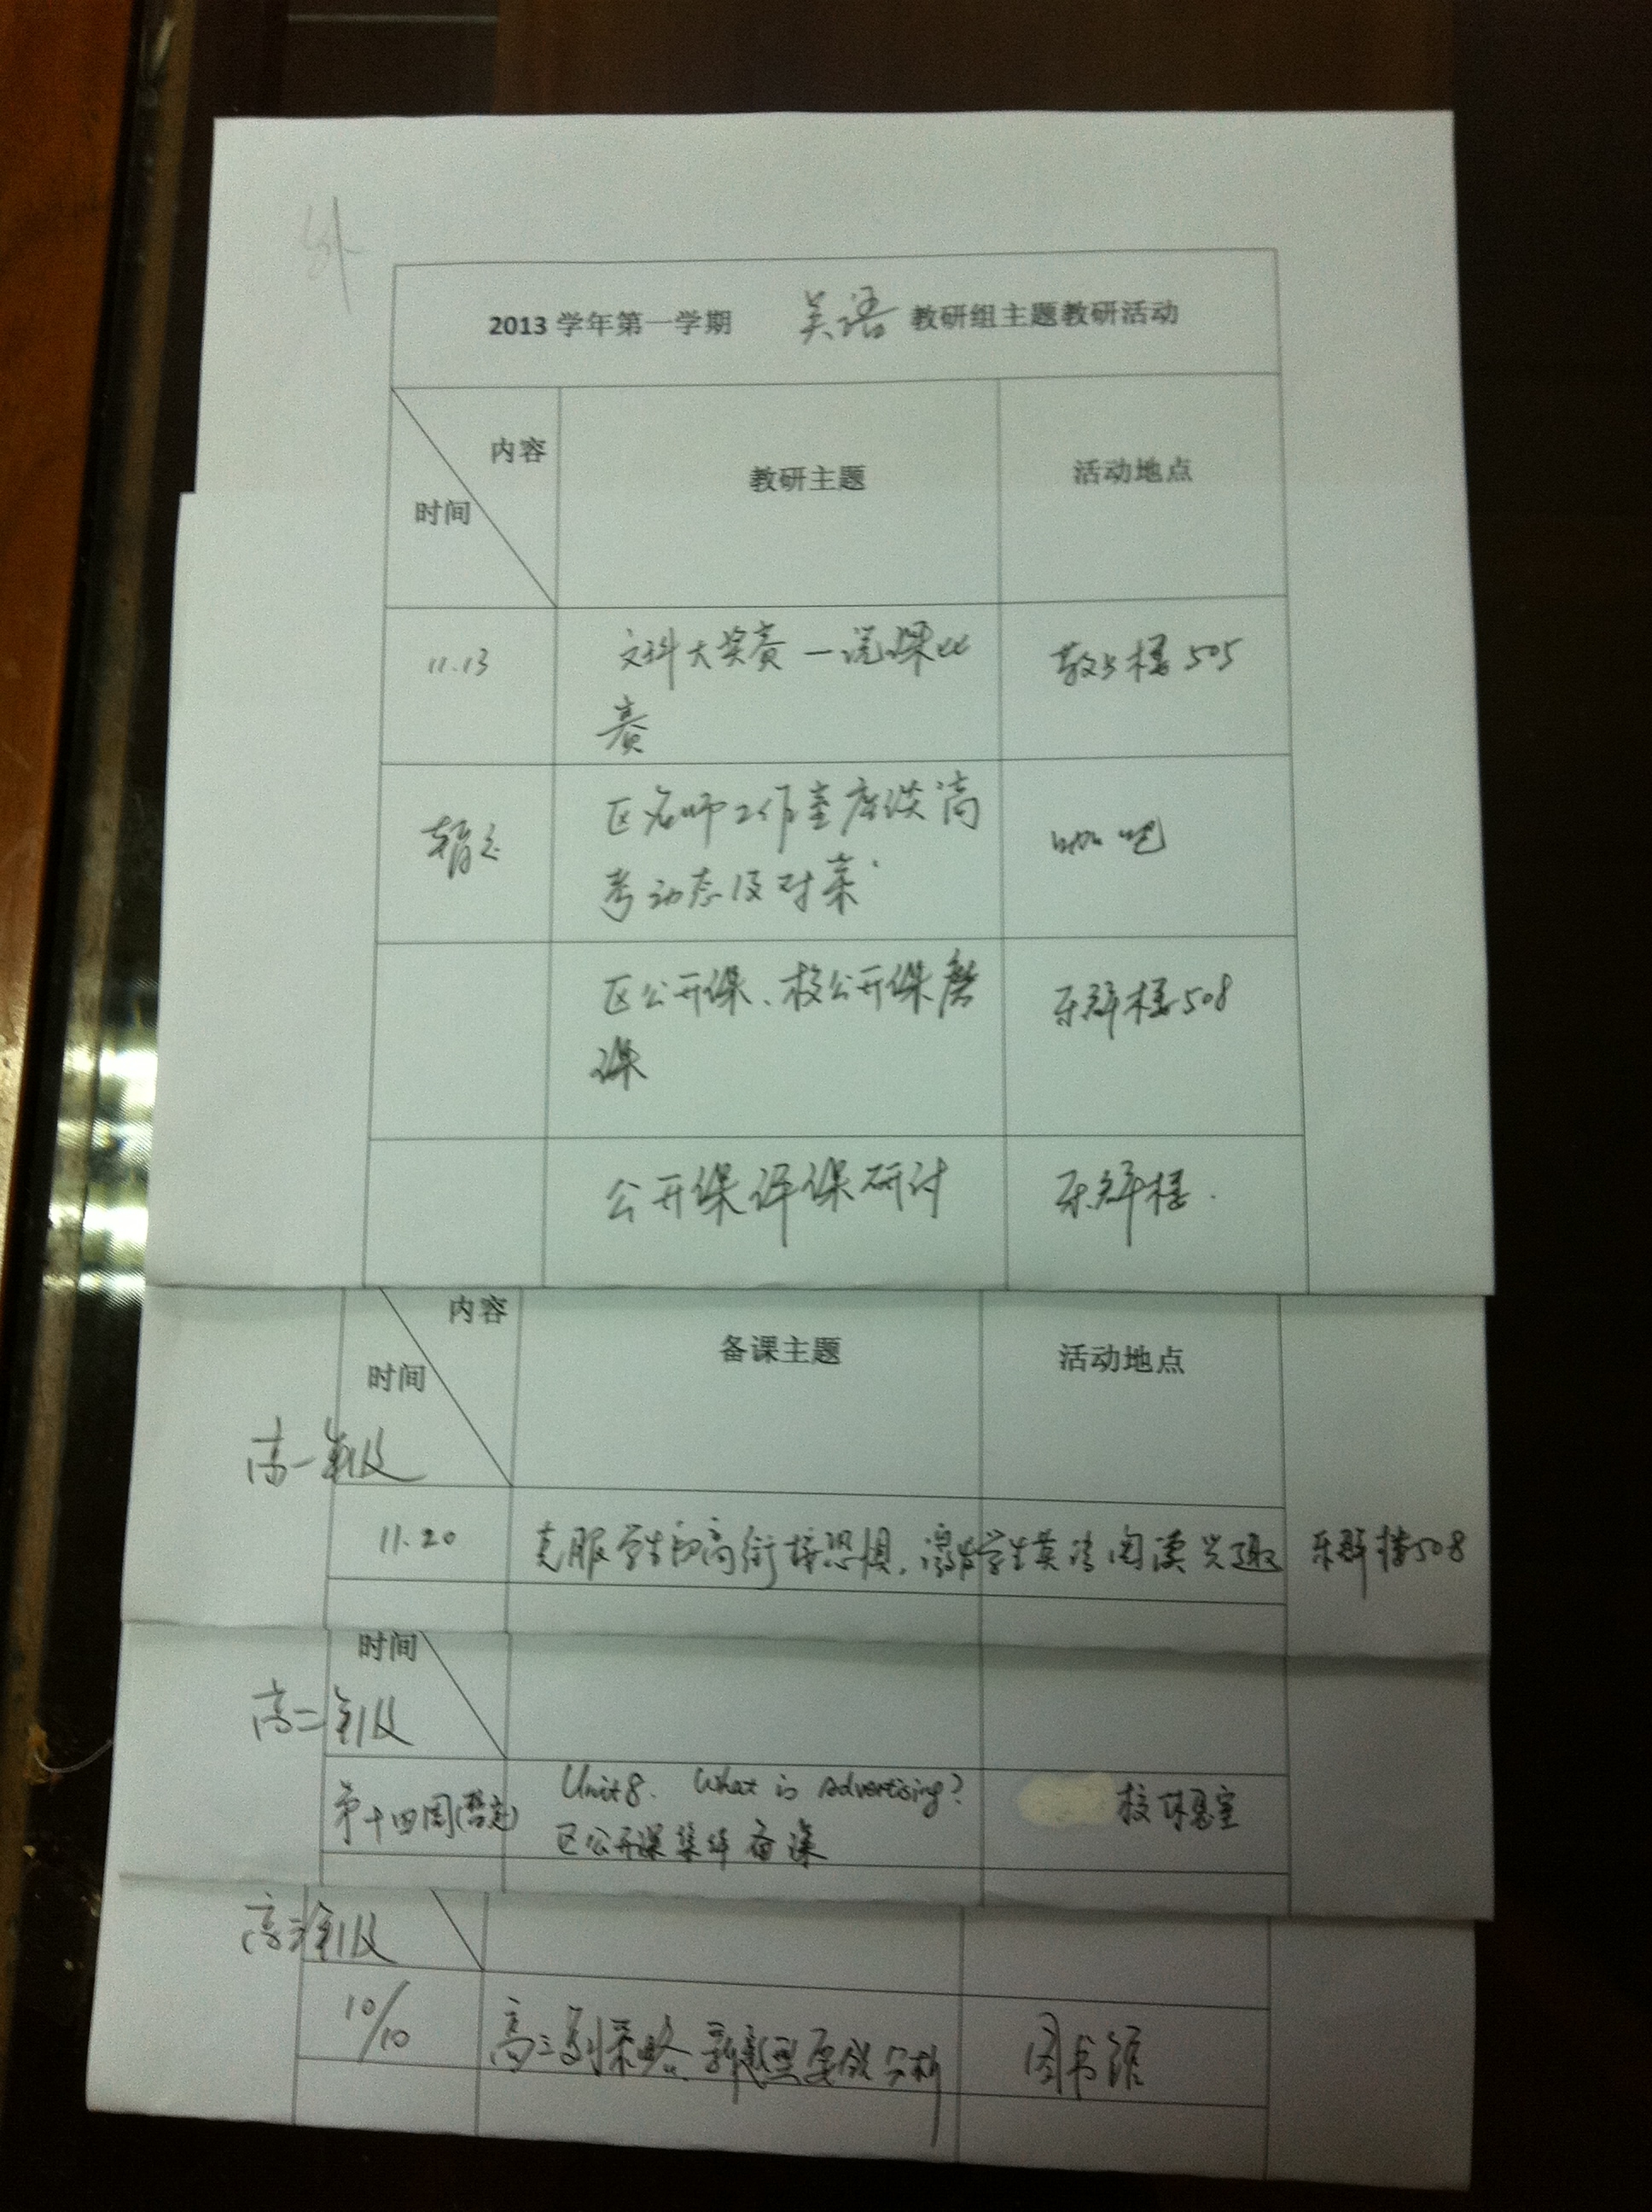 2013 学年第一学期 英语 教研组主题教研活动
内容
时间
教研主题
活动地点
11.13
文科大奖赛—说课比
赛
教学楼505
暂定
区名师工作室座谈高
考动态及对策
咖吧
区公开课、校公开课磨
课
乐群楼508
公开课评课研讨
乐群楼.
内容
时间
备课主题
活动地点
高一年级
11.20
克服学生初高衔接恐惧,激发学生英语阅读兴趣
乐群楼508
时间
高二年级
第十四周(暂定)
Unit8. What is Advertising?
区公开课集体备课
校休息室
高三年级
10/10
高三复习策略、新题型 分析
图书馆